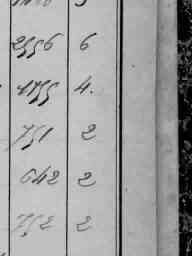 2556 6
1455 4.
751 2
642 2
752 2